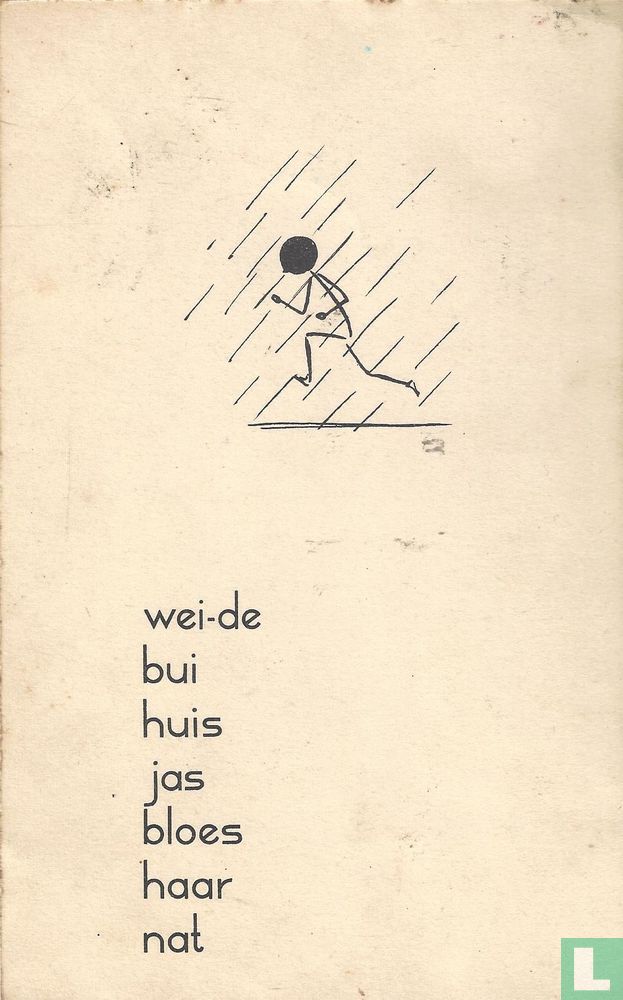 wei-de
bui
huis
jas
bloes
haar
nat
L